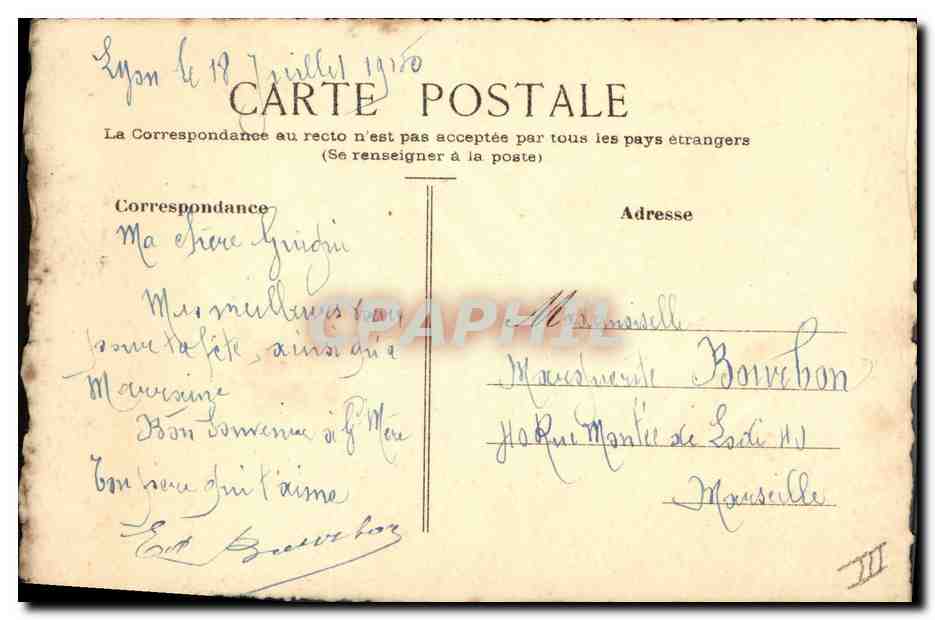 Lyon le 18 Juillet
CARTE POSTALE
La Correspondance au recto n'est pas acceptée par tous les pays étrangers
(Se renseigner à la poste)
Correspondance
Ma chère Guigui
Mes meilleurs
pour ta fête, ainsi qu'a
Marraine
Bon Souvenir à Gd Mère
Ton père qui t'aime
Ed Bourbon
Adresse
Mademoiselle
Marguerite Bourbon
Rue Montée de Lodi
Marseille
III
CPAPHIL